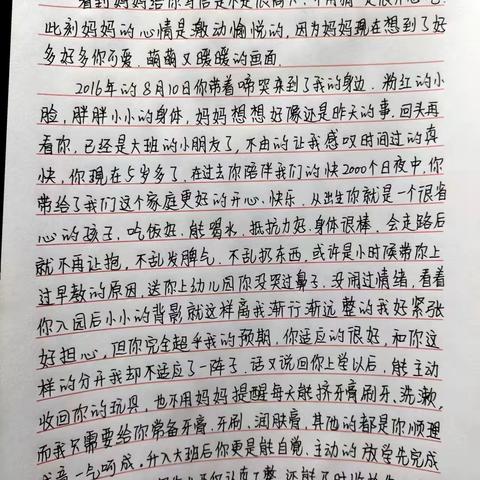 此刻妈妈的心情是激动愉悦的,因为妈妈现在想到了好
多好多你可爱、萌萌又暖暖的画面.
2016年的8月10日你带着啼哭来到了我的身边.粉红的小
脸,胖胖小小的身体,妈妈想想好像还是昨天的事.回头再
看你,已经是大班的小朋友了,不由的让我感叹时间过的真
快,你现在5岁多了.在过去你陪伴我们的快2000个日夜中,你
带给了我们这个家庭更好的开心、快乐.从出生你就是一个很省
心的孩子,吃饭好.能喝水.抵抗力好.身体很棒.会走路后
就不再让抱,不乱发脾气.不乱扔东西,或许是小时候带你上
过早教的原因,送你上幼儿园你没哭过鼻子.没闹过情绪,看着
你入园后小小的背影就这样离我渐行渐远整的我好紧张
好担心,但你完全超乎我的预期,你适应的很好,和你这
样的分开我却不适应了一阵子.话又说回你上学以后,能主动
收回你的玩具,也不用妈妈提醒每天能挤牙膏刷牙、洗漱,
而我只需要给你常备牙膏.牙刷、润肤膏,其他的都是你顺理
成章一气呵成,升入大班后你更是能自觉、主动的放学先完成